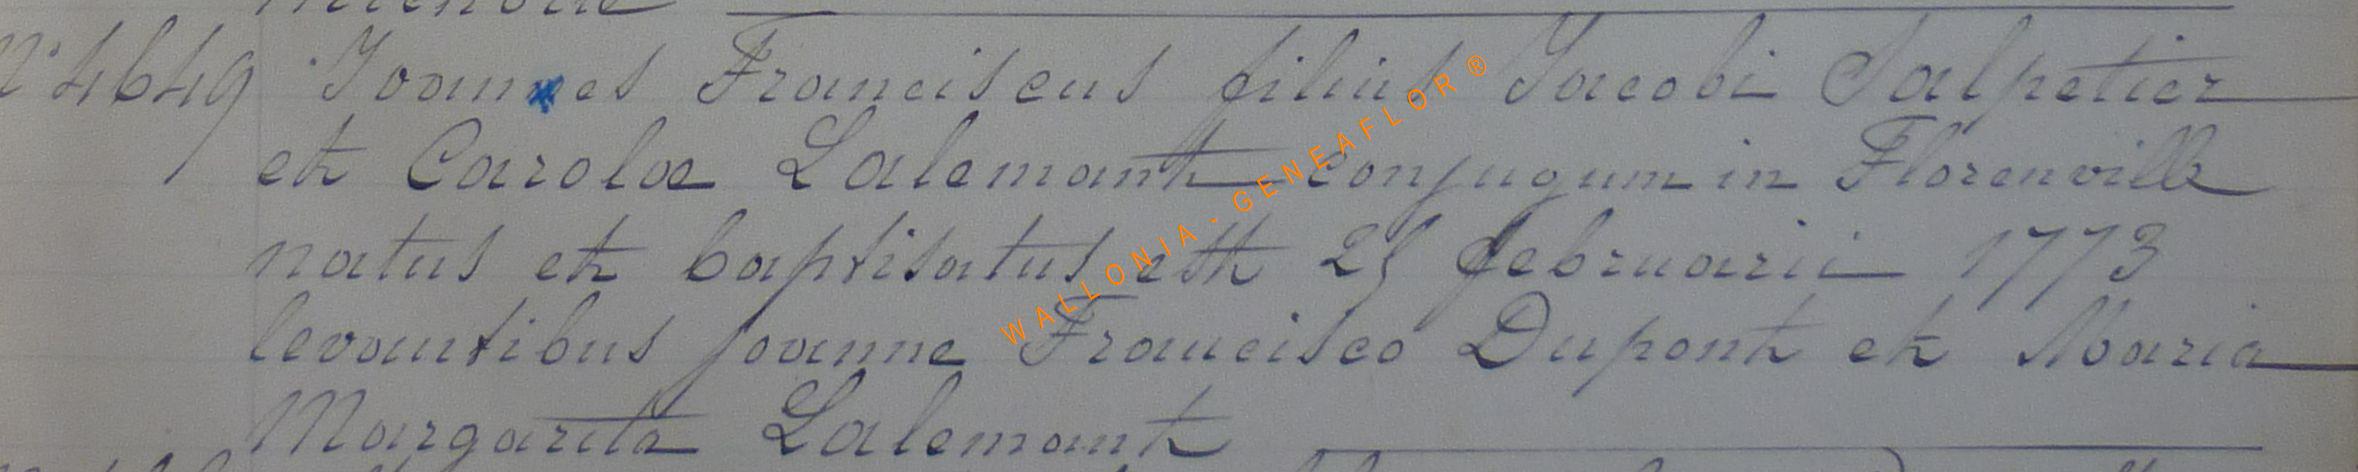 N° 4649 Joannes Franciscus filius Jacobi Salpetier
et Carolae Lalemant conjugum in Florenville
natus et baptisatus est 25 februarii 1773
levantibus joanne Francisco Dupont et Maria
Margarita Lalemant
WALLONIA - GENEAFLOR ®